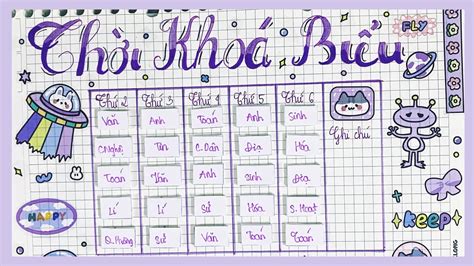 Thời Khoá Biểu
FLY
Thứ 2 Thứ 3 Thứ 4 Thứ 5 Thứ 6
Văn Anh Toán Anh Sinh
Ghi chú
C.Nghệ Tin C.Dân Địa Hóa
Toán Văn Anh Sinh Địa
Lí Lí Sử Hóa S.Hoạt
HAPPY
keep
Q.Hương Sử Văn Toán Toán